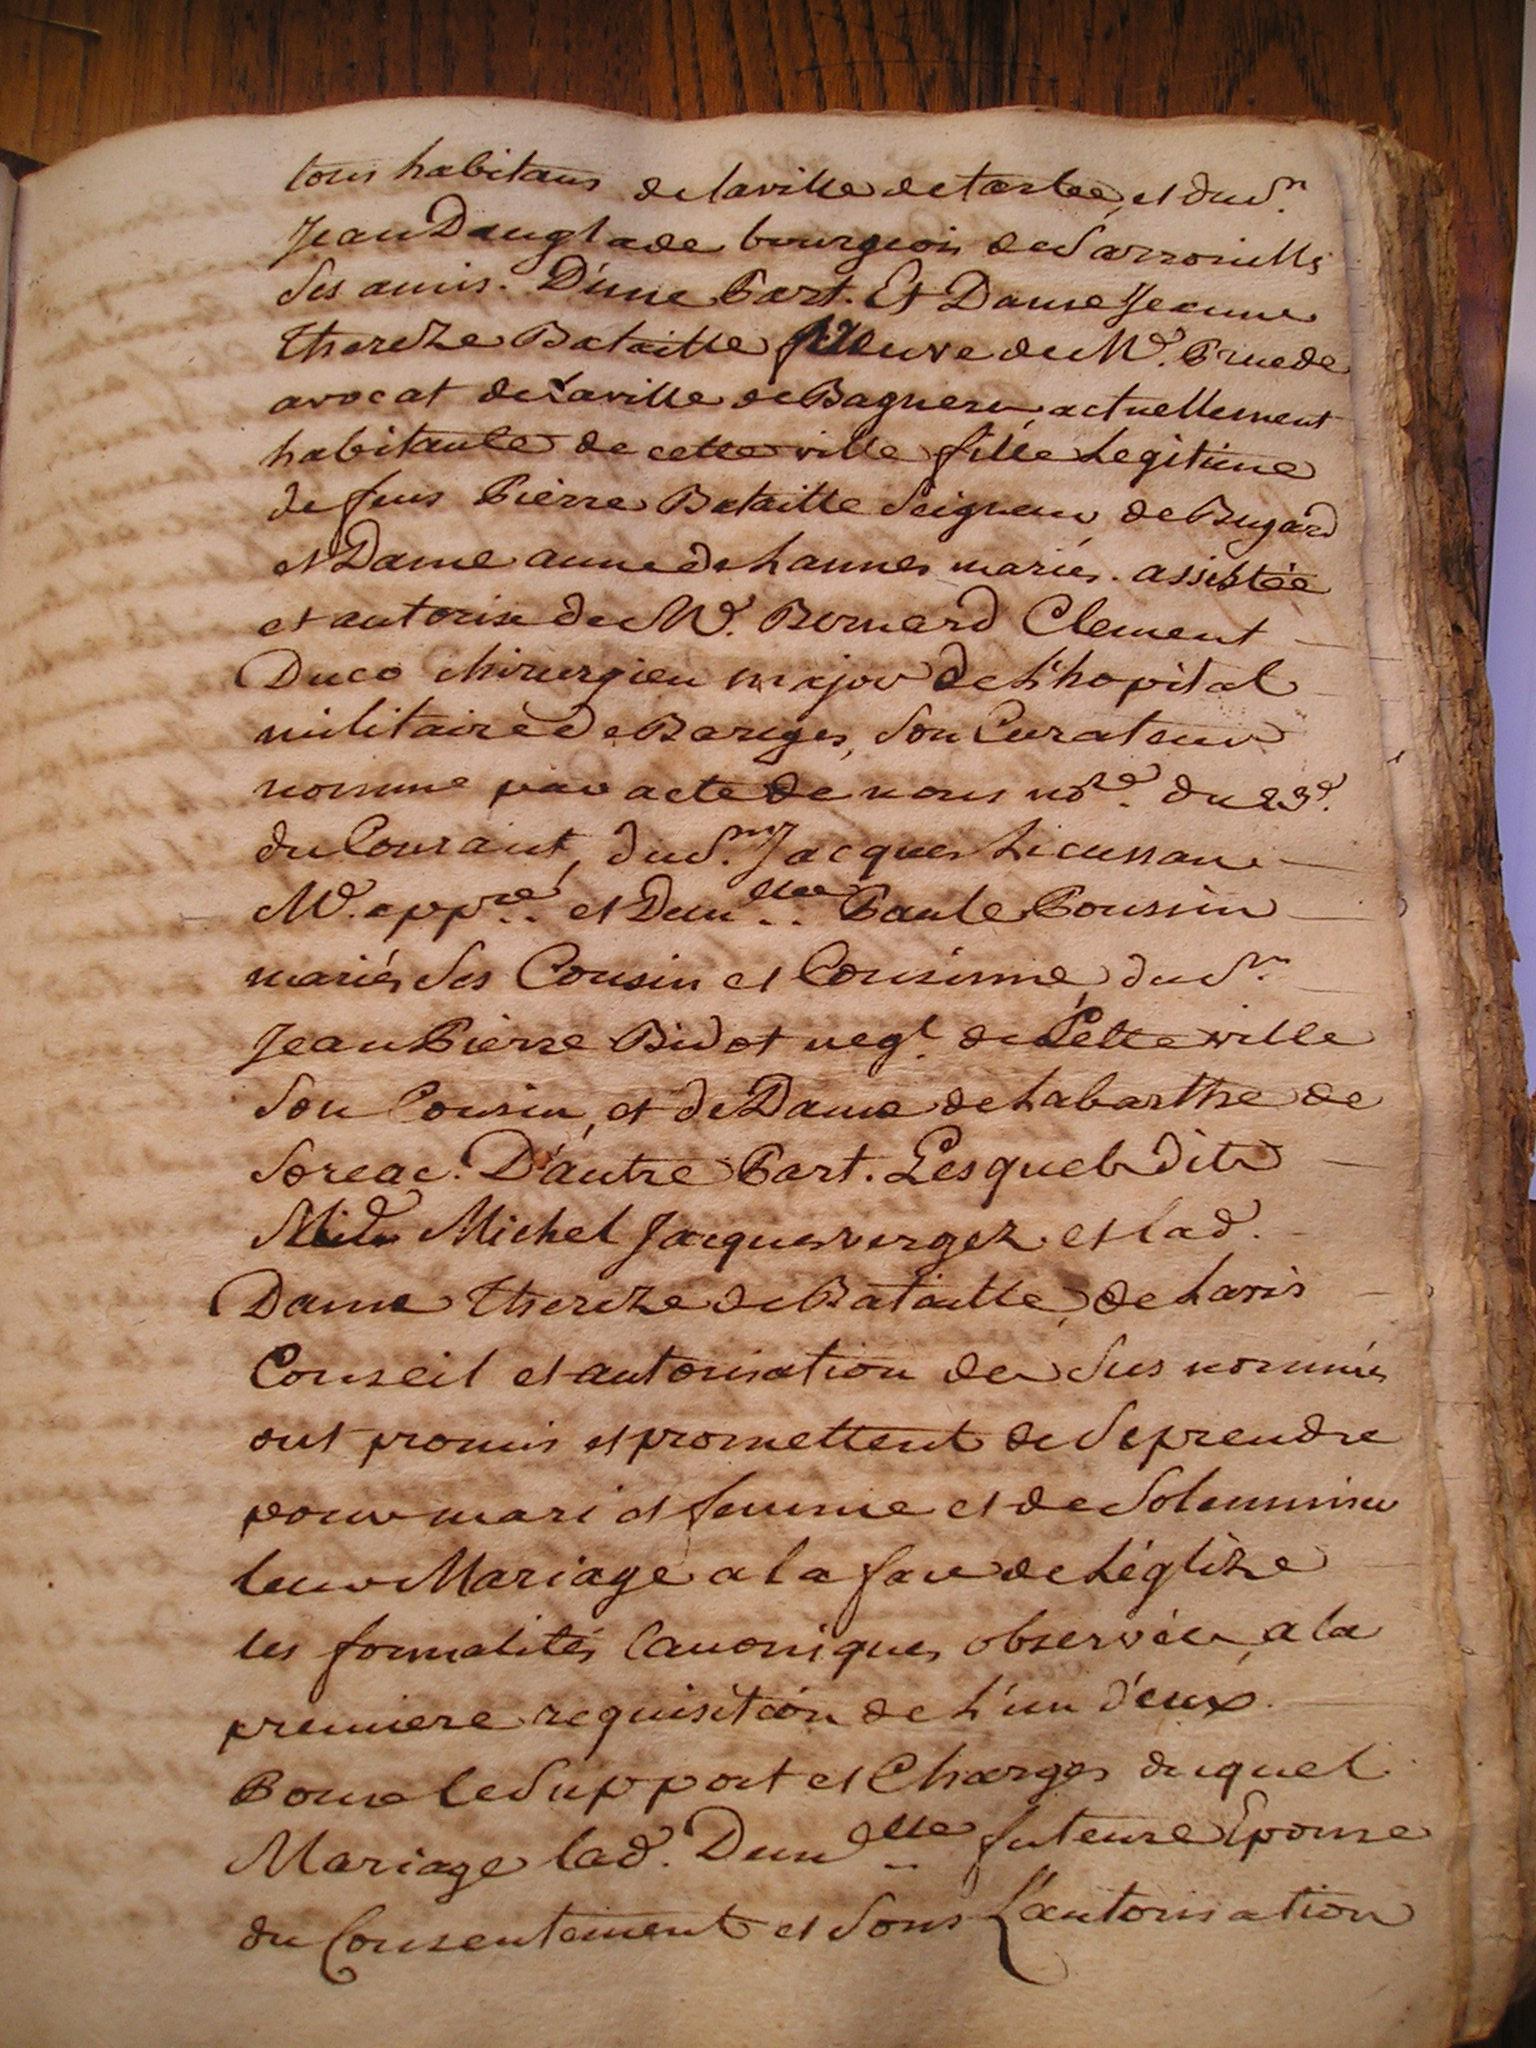 tous habitans de la ville de tarbes, et du Sr.
Jean Dauglade bourgeois de Sarrouilles
Ses amis. D'une Part. Et Dame Jeanne
thereze Bataille veuve de Me. Pruede
avocat de la ville de Bagneres, actuellement
habitante de cette ville fille Legitime
de feus Pierre Bataille Seigneur de Bugard
et Dame anne de hannes mariés. assistée
et autorise de Me. Bernard Clement
Duco chirurgien major de L'hopital
militaire de Bareges, Son Curateur
nomme par acte de nous nore. du 23e.
du Courant, du Sr. Jacques Licussan
Me. appre. et Demlle. Paule Poussin
mariés Ses Cousin et Cousinne, du Sr.
Jean Pierre Bidot negt. de Cette ville
Son Cousin, et de Dame de Labarthe de
Soreac. D'autre Part. Lesquels dits
Michel Jacques vergez et lad.
Dame thereze de Bataille, de Lavis
Conseil et autorisation des Sus nommés
ont promis et promettent de Se prendre
pour mari et femme et de Solemniser
leur Mariage a la face de L'églize
les formalités Canoniques observées, a la
premiere requisition de L'un d'eux.
Pour le Support et Charges duquel
Mariage lad. Demlle future Epouse
du Consentement et Sous L'autorisation